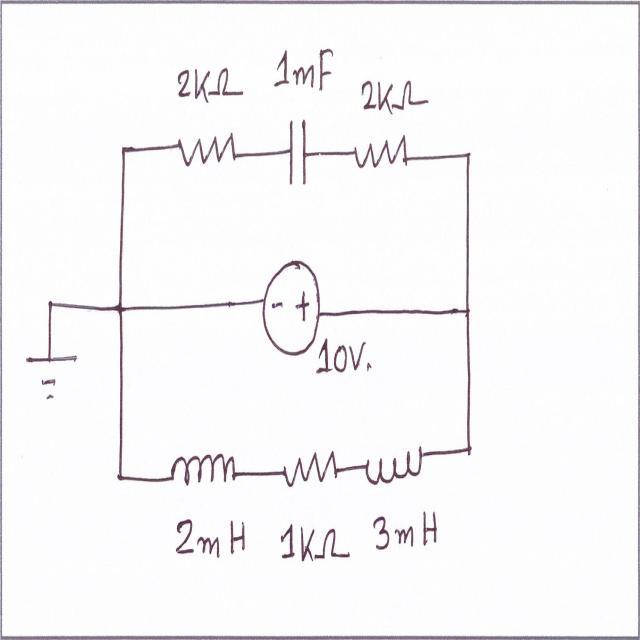 2KΩ 1mF 2KΩ
- +
10V.
2mH 1KΩ 3mH